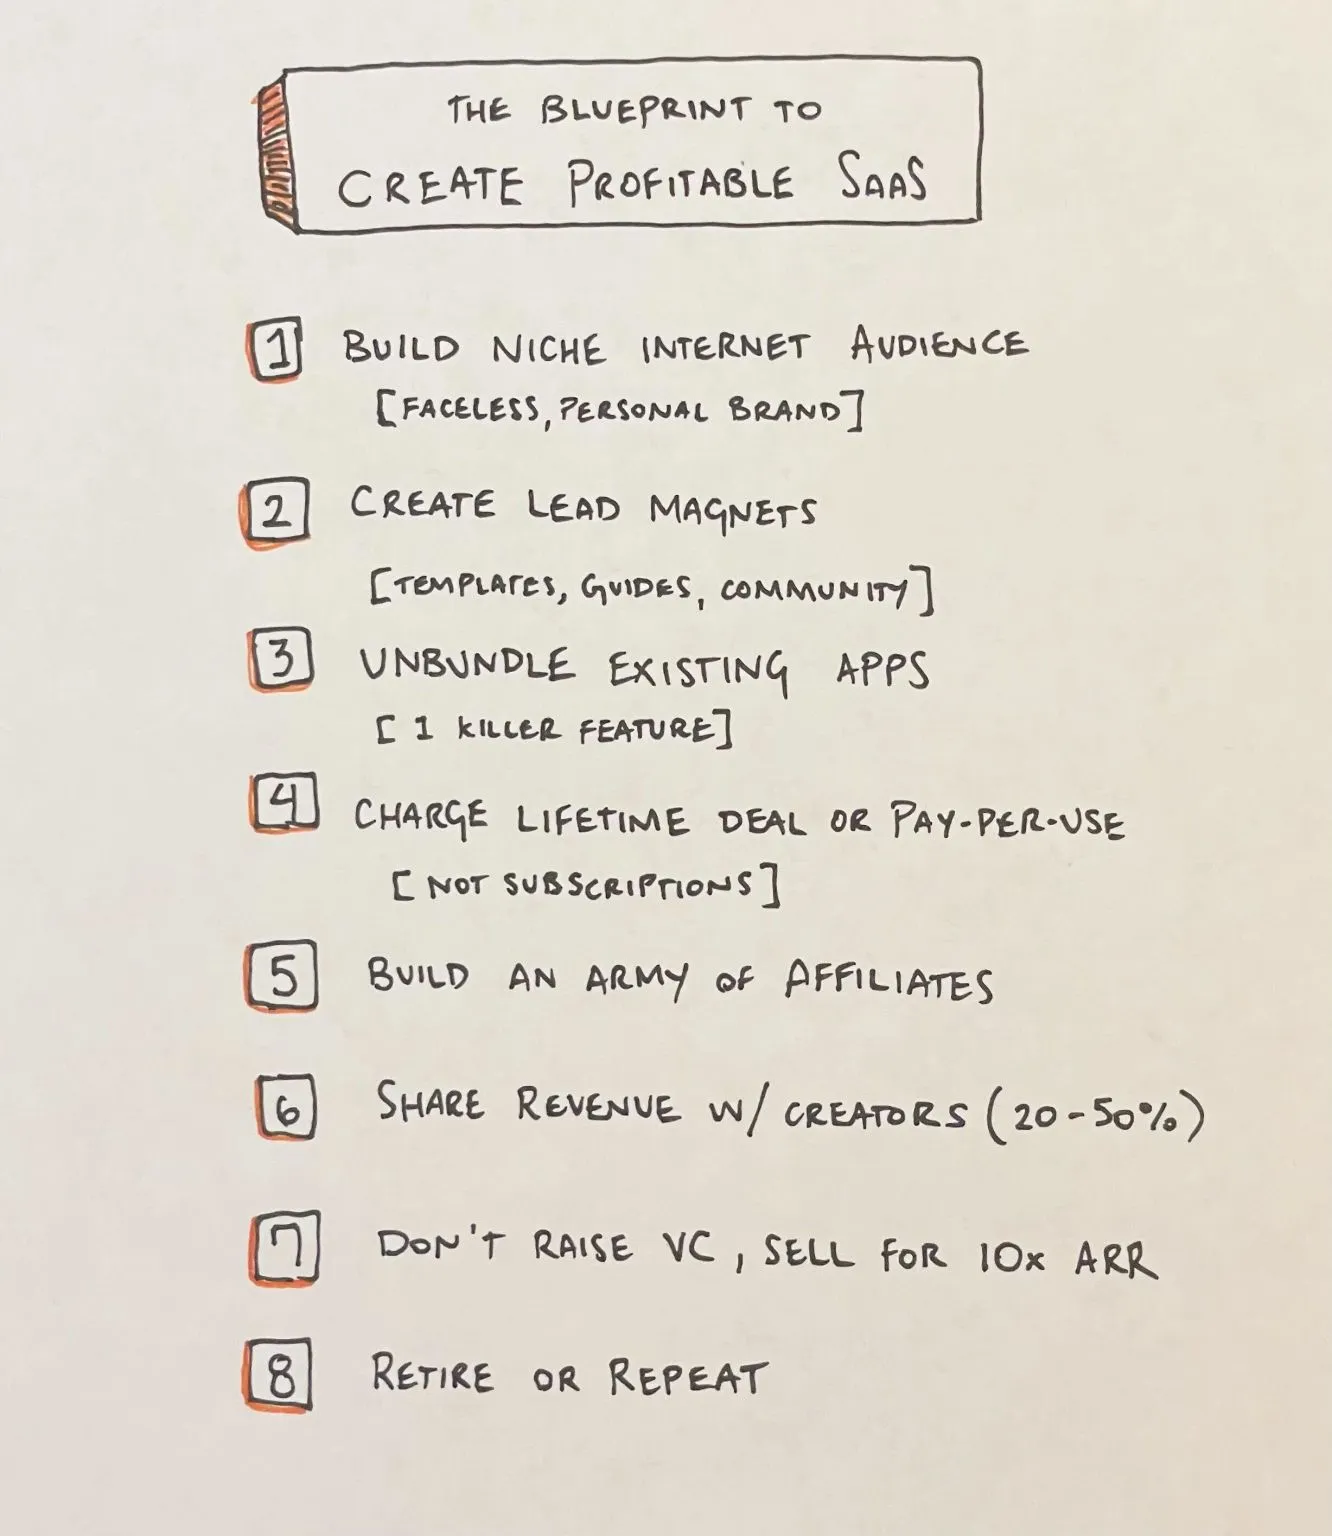 THE BLUEPRINT TO
CREATE PROFITABLE SAAS
1 BUILD NICHE INTERNET AUDIENCE
[FACELESS, PERSONAL BRAND]
2 CREATE LEAD MAGNETS
[TEMPLATES, GUIDES, COMMUNITY]
3 UNBUNDLE EXISTING APPS
[1 KILLER FEATURE]
4 CHARGE LIFETIME DEAL OR PAY-PER-USE
[NOT SUBSCRIPTIONS]
5 BUILD AN ARMY OF AFFILIATES
6 SHARE REVENUE W/ CREATORS (20-50%)
7 DON'T RAISE VC, SELL FOR 10X ARR
8 RETIRE OR REPEAT